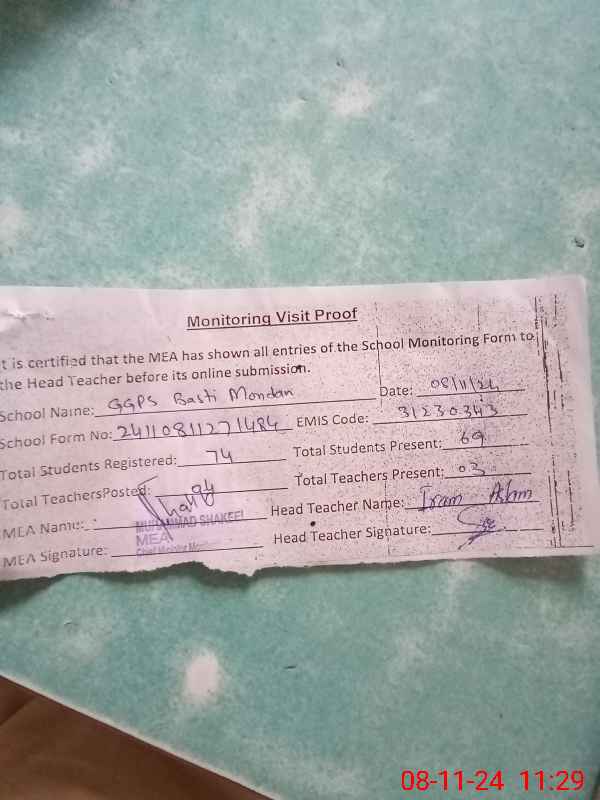 Monitoring Visit Proof
t is certified that the MEA has shown all entries of the School Monitoring Form to
the Head Teacher before its online submission.
School Name: GGPS Basti Mondan Date: 08/11/24
School Form No: 24110811271484 EMIS Code: 31230343
Total Students Registered: 74 Total Students Present: 69
Total TeachersPosted: Total Teachers Present: 03
MEA Name: MUHAMMAD SHAKEEL Head Teacher Name: Iram
MEA
MEA Signature: Chief Minister Head Teacher Signature:
08-11-24 11:29